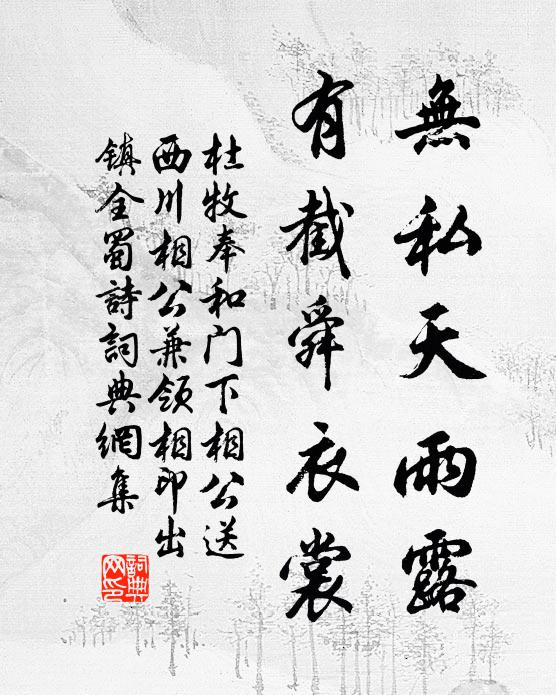 無私天雨露
有截舜衣裳
杜牧奉和门下相公送
西川相公兼领相印出
镇全蜀詩詞典網集
詞典
网印